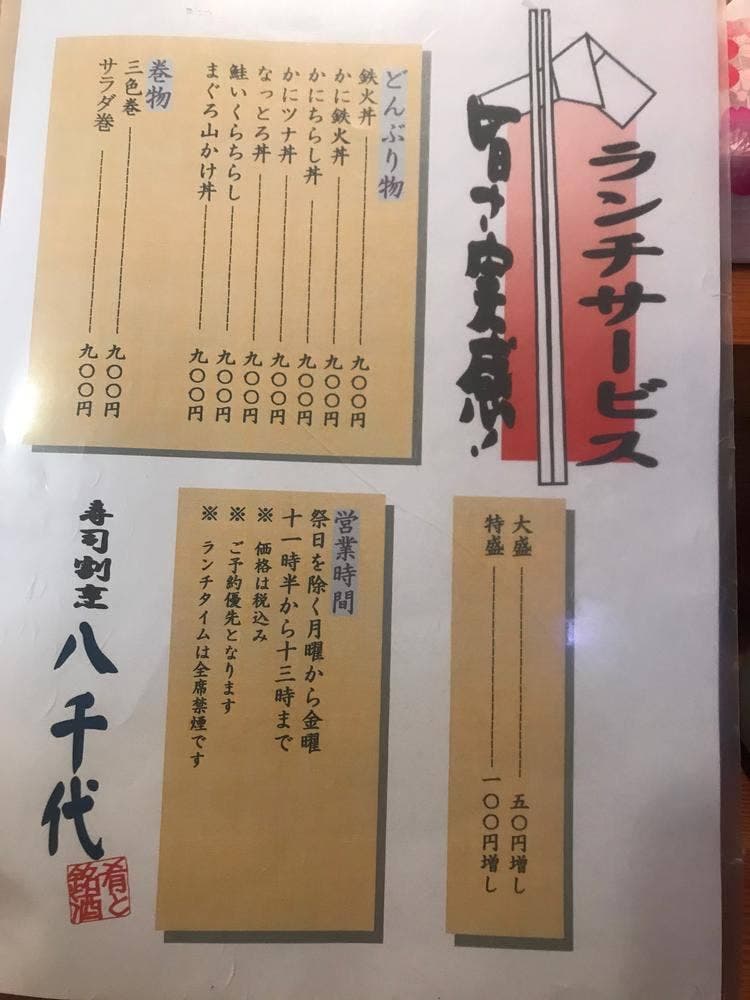 ランチサービス
どんぶり物
鉄火丼 九〇〇円
かに鉄火丼 九〇〇円
かにちらし丼 九〇〇円
かにツナ丼 九〇〇円
なっとろ丼 九〇〇円
鮭いくらちらし 九〇〇円
まぐろ山かけ丼 九〇〇円
巻物
三色巻 九〇〇円
サラダ巻 九〇〇円
大盛 五〇円増し
特盛 一〇〇円増し
営業時間
祭日を除く月曜から金曜
十一時半から十三時まで
※ 価格は税込み
※ ご予約優先となります
※ ランチタイムは全席禁煙です
寿司割烹
八千代
肴と
銘酒